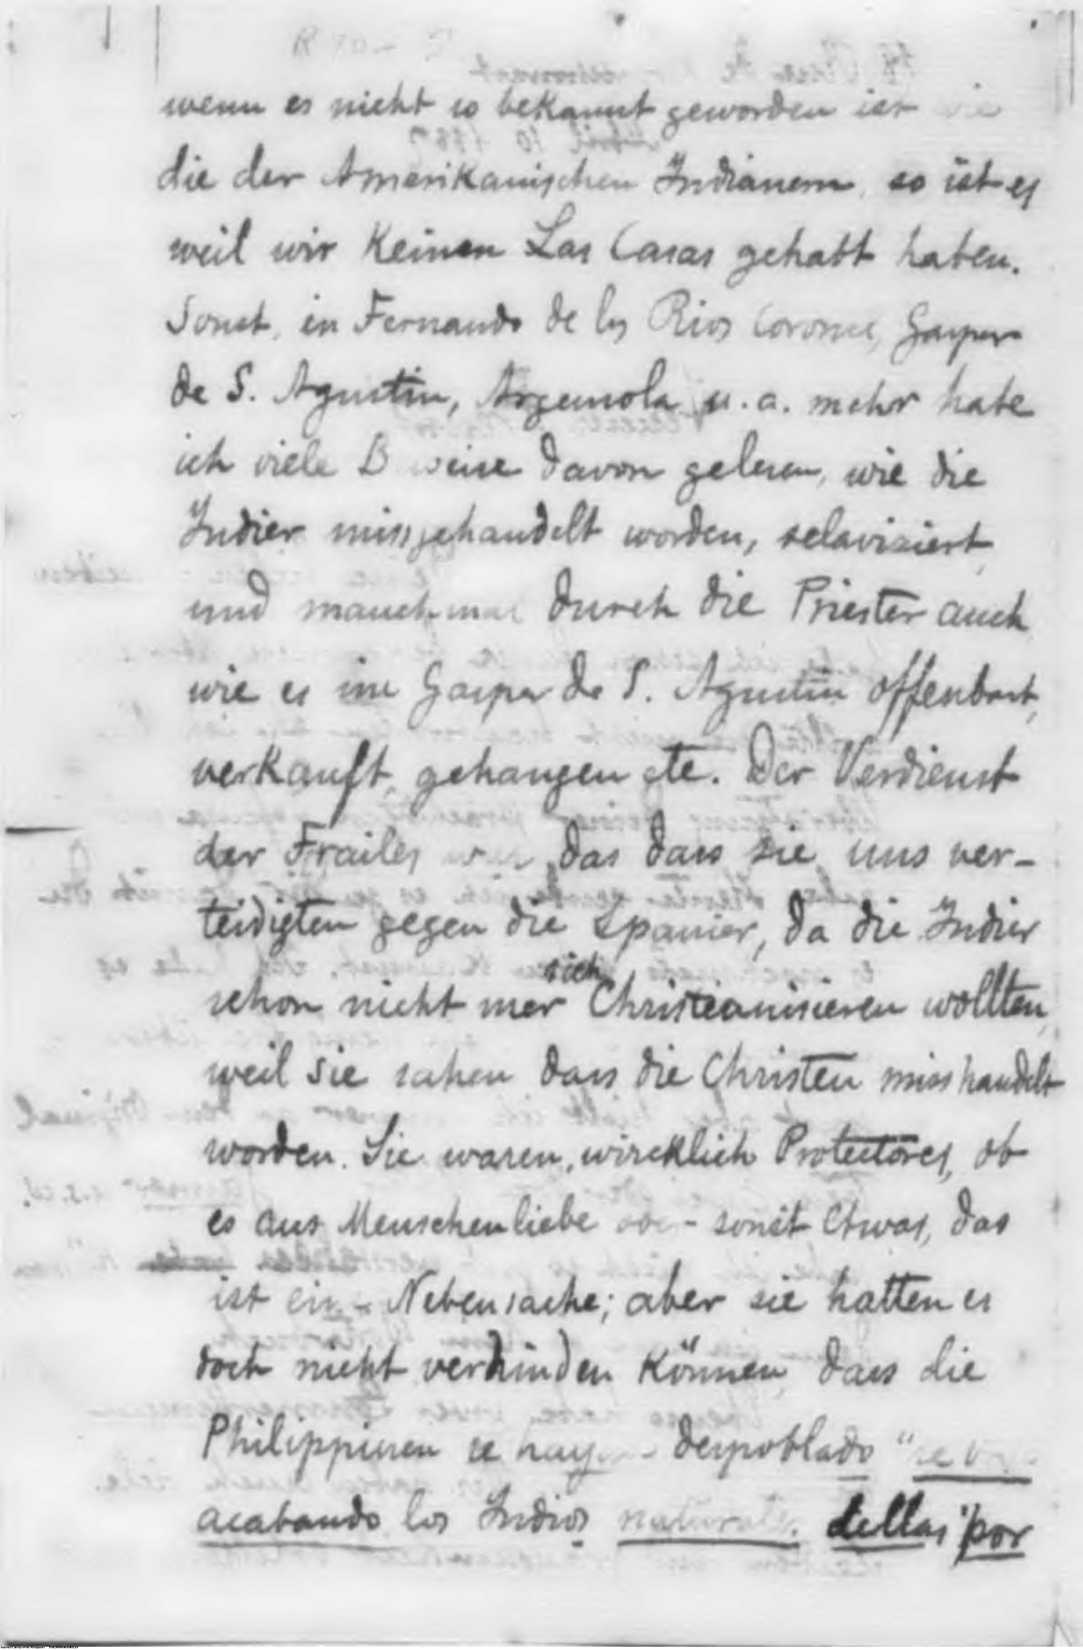 wenn es nicht so bekannt geworden ist wie
die der Amerikanischen Indianern, so ist es
weil wir keinen Las Casas gehabt haben.
Sonst, in Fernando de los Rios Coronel, Gaspar
de S. Agustin, Argensola u. a. mehr habe
ich viele Beweise davon gelesen, wie die
Indier missgehandelt worden, sclavisiert,
und manchmal durch die Priester auch
wie es im Gaspar de S. Agustin offenbart,
verkauft, gehangen etc. Der Verdienst
der Frailes war das dass sie uns ver-
teidigten gegen die Spanier, da die Indier
schon nicht mer sich Christianisieren wollten,
weil sie sahen dass die Christen misshandelt
worden. Sie waren, wircklich Protectores, ob
es aus Menschenliebe oder sonst Etwas, das
ist eine Nebensache; aber sie hatten es
doch nicht verhinden können, dass die
Philippinen se hayan despoblado "se van
acabando los Indios naturales dellas" por